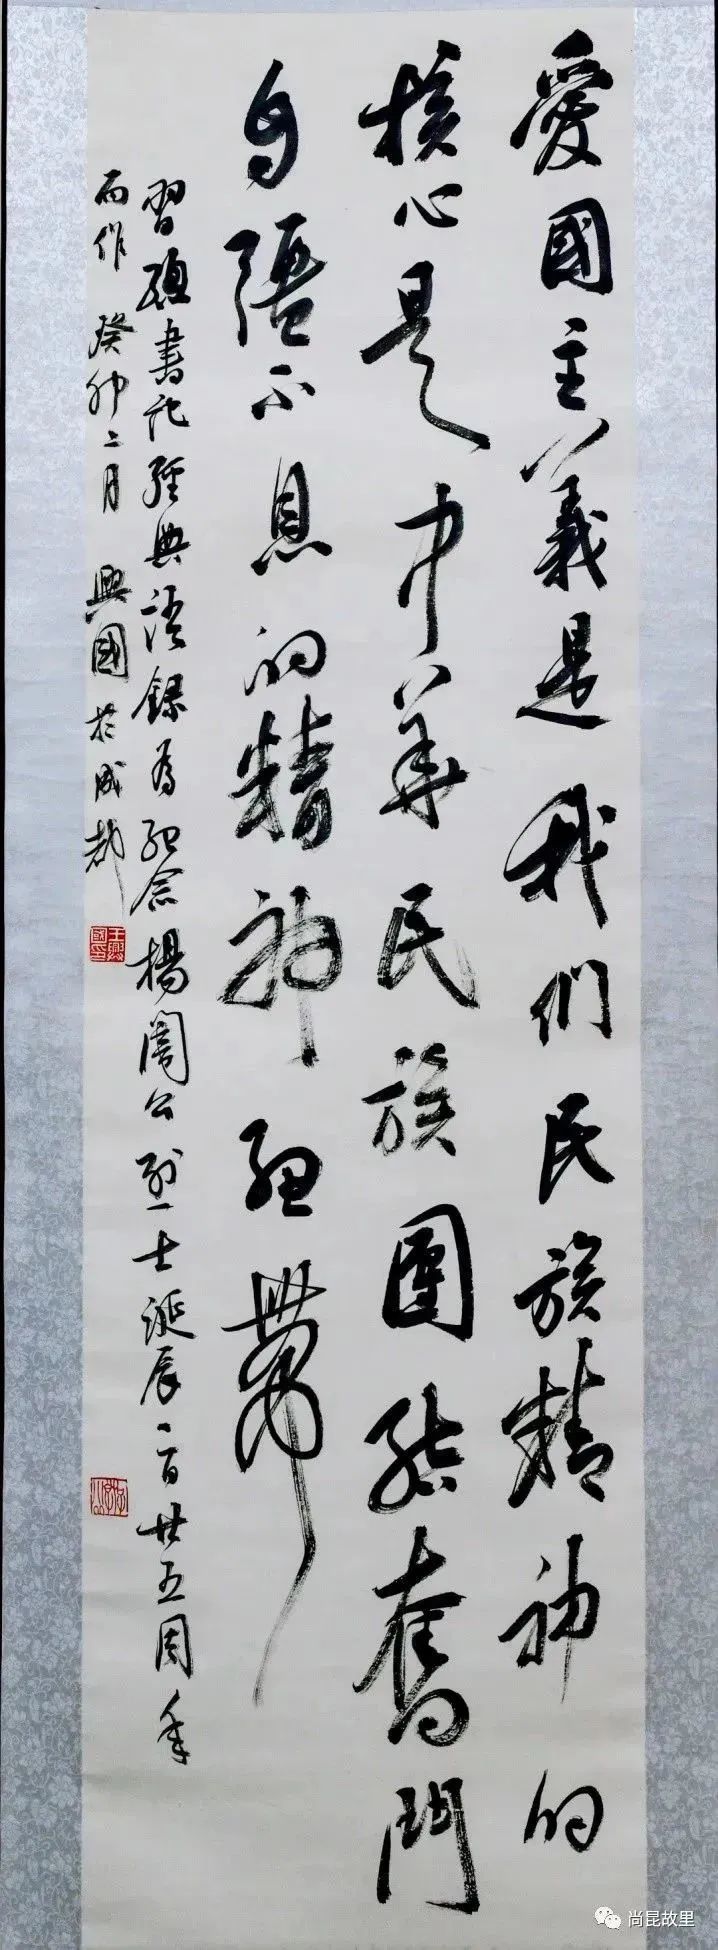 愛國主義是我们民族精神的
核心是中華民族團结奮鬥
自强不息的精神纽帶
習總書記經典语錄为紀念楊闇公烈士诞辰一百廿五周年
而作 癸卯二月 興國於成都
王興國印
尚昆故里